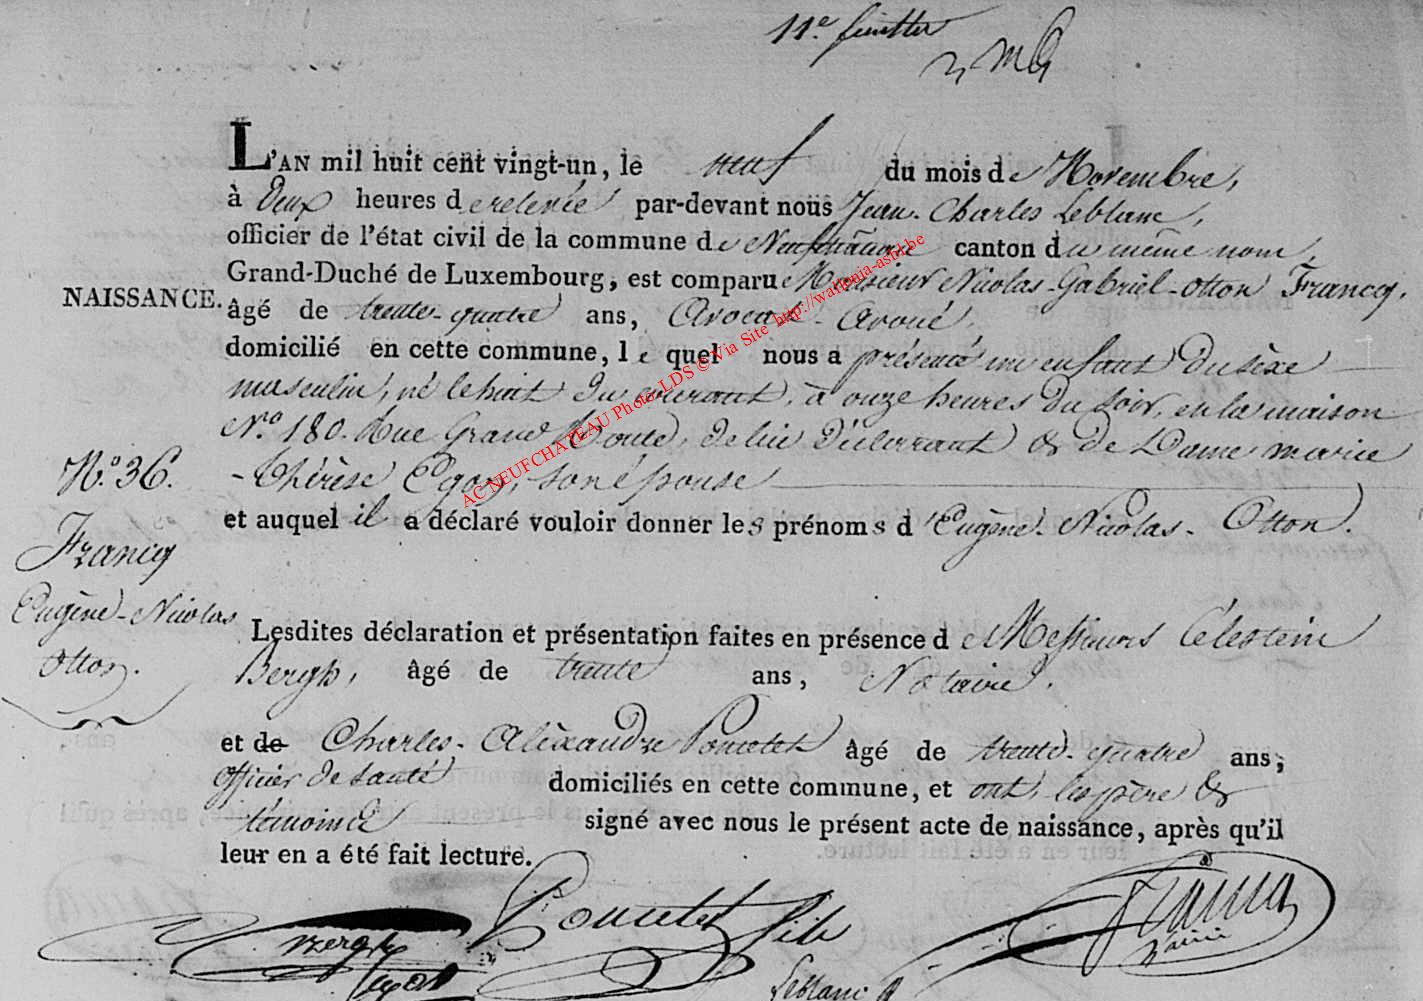 11e feuillet
L'AN mil huit cent vingt-un, le neuf du mois de Novembre,
à deux heures de relevée par-devant nous Jean-Charles Leblanc,
officier de l'état civil de la commune de Neufchâteau canton du même nom,
Grand-Duché de Luxembourg, est comparu Monsieur Nicolas-Gabriel-Otton Francq,
NAISSANCE.
âgé de trente-quatre ans, Avocat-Avoué,
domicilié en cette commune, lequel nous a présenté un enfant du sèxe
masculin, né le huit du courant, à onze heures du soir, en la maison
No. 180. Rue Grand'Route, de lui déclarant & de Dame marie
N.o 36.
-Thérèse son épouse
et auquel il a déclaré vouloir donner les prénoms d'Eugène-Nicolas-Otton.
Francq
Eugène-Nicolas
Otton.
Lesdites déclaration et présentation faites en présence de Messieurs Célestin
Bergh, âgé de trente ans, Notaire,
et de Charles-Alèxandre Poncelet âgé de trente-quatre ans,
officier de santé domiciliés en cette commune, et ont, les père &
témoins signé avec nous le présent acte de naissance, après qu'il
leur en a été fait lecture.
Bergh
Poncelet fils
Francq
Leblanc
AC NEUFCHATEAU Photo-LDS © Via Site http://wallonia-asbl.be